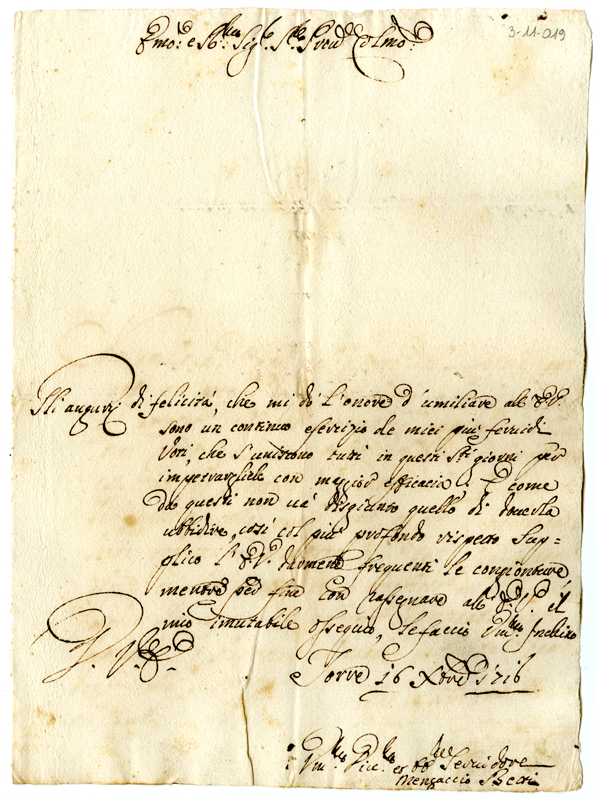 Em.o e R.mo Sig.r S.r Pron Col.mo
3-11-019
Gli augurj di felicità, che mi dò l'onore d'umiliare all' E.V.
sono un continuo esercizio de miei più fervidi
Voti, che s'uniscono tutti in questi S.ti giorni per
impetrargliele con maggior efficacia; E come
da questi non và disgiunto quello di doverla
ubbidire, così col più profondo rispetto sup=
plico l'E.V. darmene frequenti le congionture
mentre per fine con rassegnare all' E.V. il
mio immutabile ossequio, le faccio Um.mo Inchino
D. V. E.
Torre 16 Xbre 1716
Um.mo Div.mo et Obb.mo Servidore